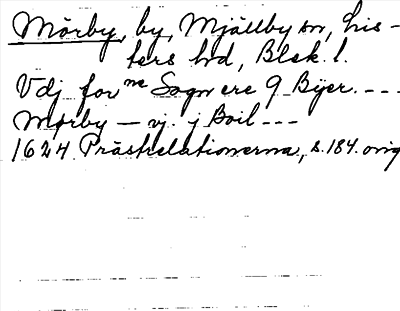 Mörby, by, Mjällby sn, Lis-
ters hd, Blek. l.
Vdj forne Sogn ere 9 Byer. - - -
Mørby — vj. j Boil - - -
1624 Prästrelationerna, s. 184. orig